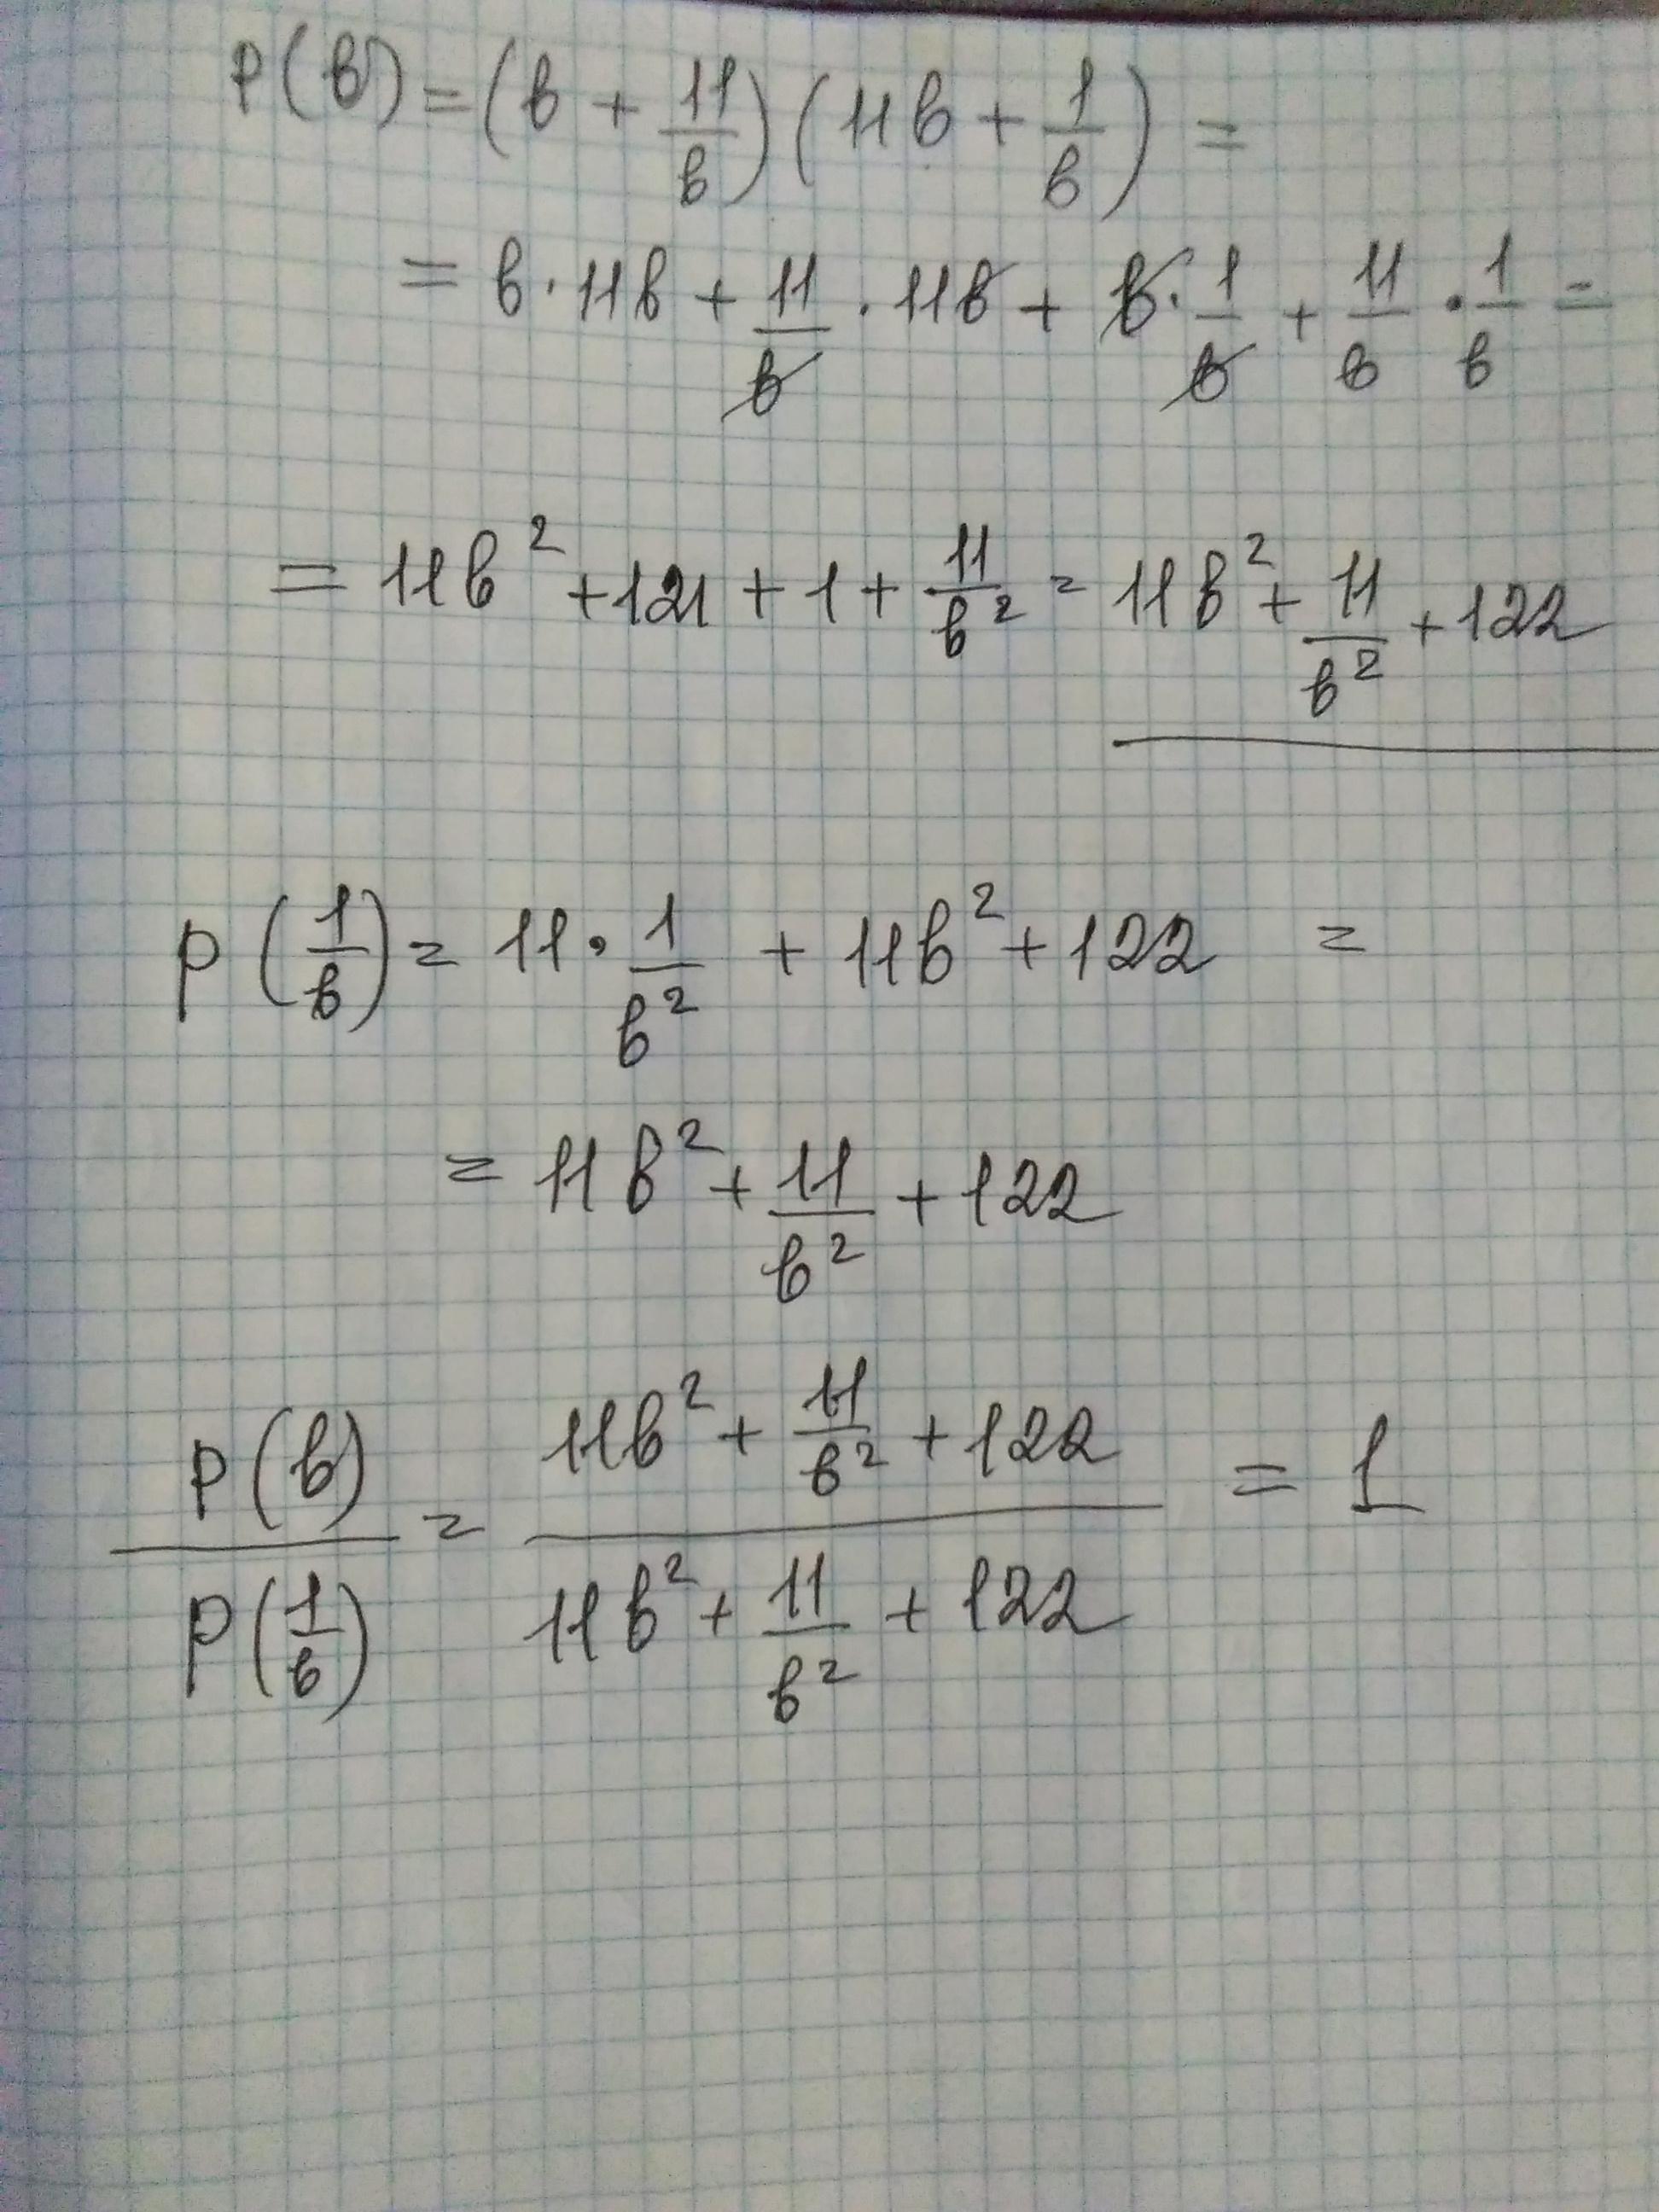 P(b) = (b + 11/b)(11b + 1/b) =
= b · 11b + 11/b · 11b + b · 1/b + 11/b · 1/b =
= 11b² + 121 + 1 + 11/b² = 11b² + 11/b² + 122
P(1/b) = 11 · 1/b² + 11b² + 122 =
= 11b² + 11/b² + 122
P(b)/P(1/b) = (11b² + 11/b² + 122)/(11b² + 11/b² + 122) = 1